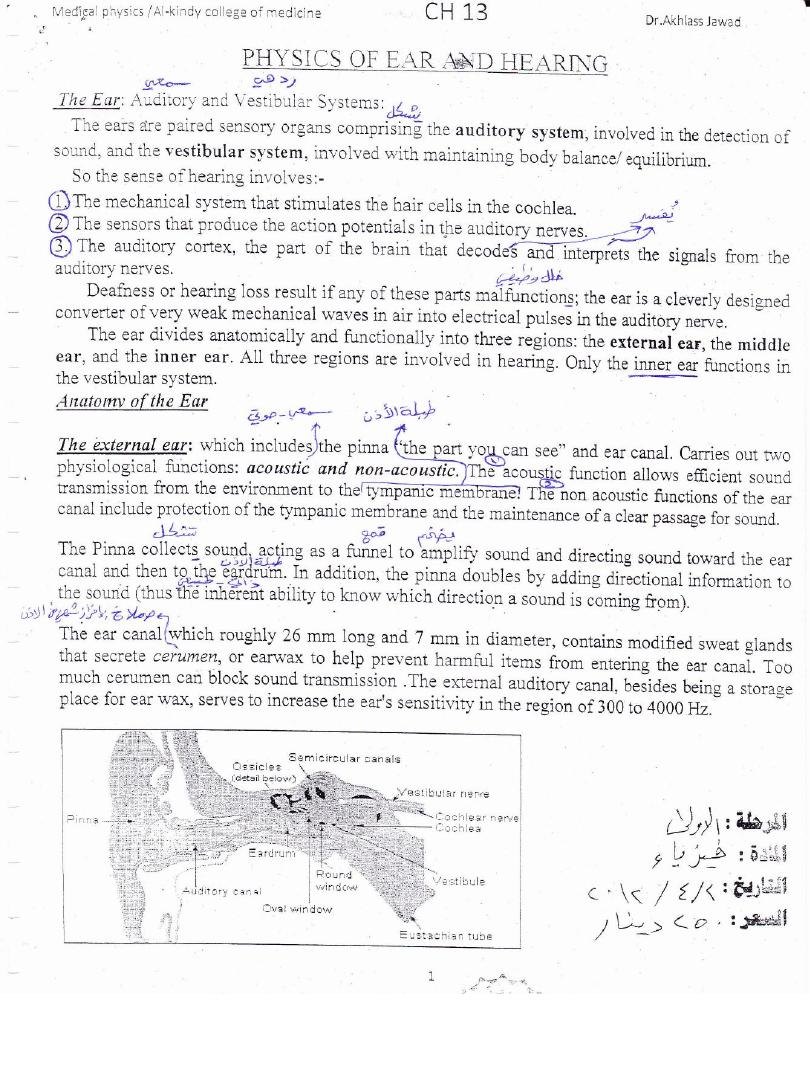 Medical physics /Al-kindy college of medicine
CH 13
Dr.Akhlass Jawad
PHYSICS OF EAR AND HEARING
سمعي
ردهة
The Ear: Auditory and Vestibular Systems:
تشكل
The ears are paired sensory organs comprising the auditory system, involved in the detection of
sound, and the vestibular system, involved with maintaining body balance/ equilibrium.
So the sense of hearing involves:-
1 The mechanical system that stimulates the hair cells in the cochlea.
تفسر
2 The sensors that produce the action potentials in the auditory nerves.
3. The auditory cortex, the part of the brain that decodes and interprets the signals from the
auditory nerves.
خلل وظيفي
Deafness or hearing loss result if any of these parts malfunctions; the ear is a cleverly designed
converter of very weak mechanical waves in air into electrical pulses in the auditory nerve.
The ear divides anatomically and functionally into three regions: the external ear, the middle
ear, and the inner ear. All three regions are involved in hearing. Only the inner ear functions in
the vestibular system.
Anatomy of the Ear
سمعي - صوتي
طبلة الأذن
The external ear: which includes the pinna “the part you can see” and ear canal. Carries out two
1
physiological functions: acoustic and non-acoustic. The acoustic function allows efficient sound
2
transmission from the environment to the tympanic membrane! The non acoustic functions of the ear
canal include protection of the tympanic membrane and the maintenance of a clear passage for sound.
تشكل
قمع
يضخم
The Pinna collects sound, acting as a funnel to amplify sound and directing sound toward the ear
طبلة الأذن
canal and then to the eardrum. In addition, the pinna doubles by adding directional information to
the sound (thus the inherent ability to know which direction a sound is coming from).
The ear canal which roughly 26 mm long and 7 mm in diameter, contains modified sweat glands
that secrete cerumen, or earwax to help prevent harmful items from entering the ear canal. Too
much cerumen can block sound transmission .The external auditory canal, besides being a storage
place for ear wax, serves to increase the ear's sensitivity in the region of 300 to 4000 Hz.
Semicircular canals
Ossicles
(detail below)
Vestibular nerve
Pinna
Cochlear nerve
Cochlea
Eardrum
Round
window
Vestibule
Auditory canal
Oval window
Eustachian tube
المرحلة : الاولى
المادة : فيزياء
التاريخ : ٢ / ٤ / ٢٠١٢
السعر : ٢٥٠ دينار
1